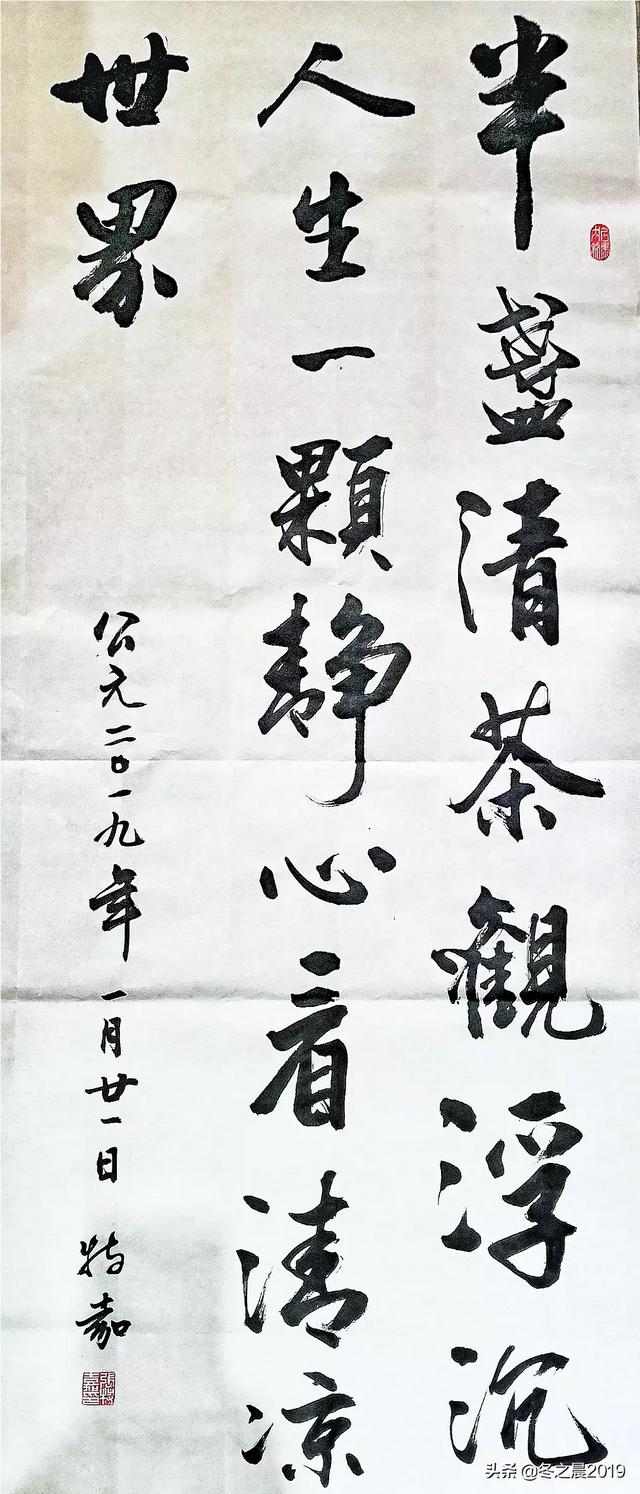 半盞清茶觀浮沉
人生一顆靜心看清凉
世界
公元二〇一九年一月廿一日 特嘉
头条@冬之晨2019